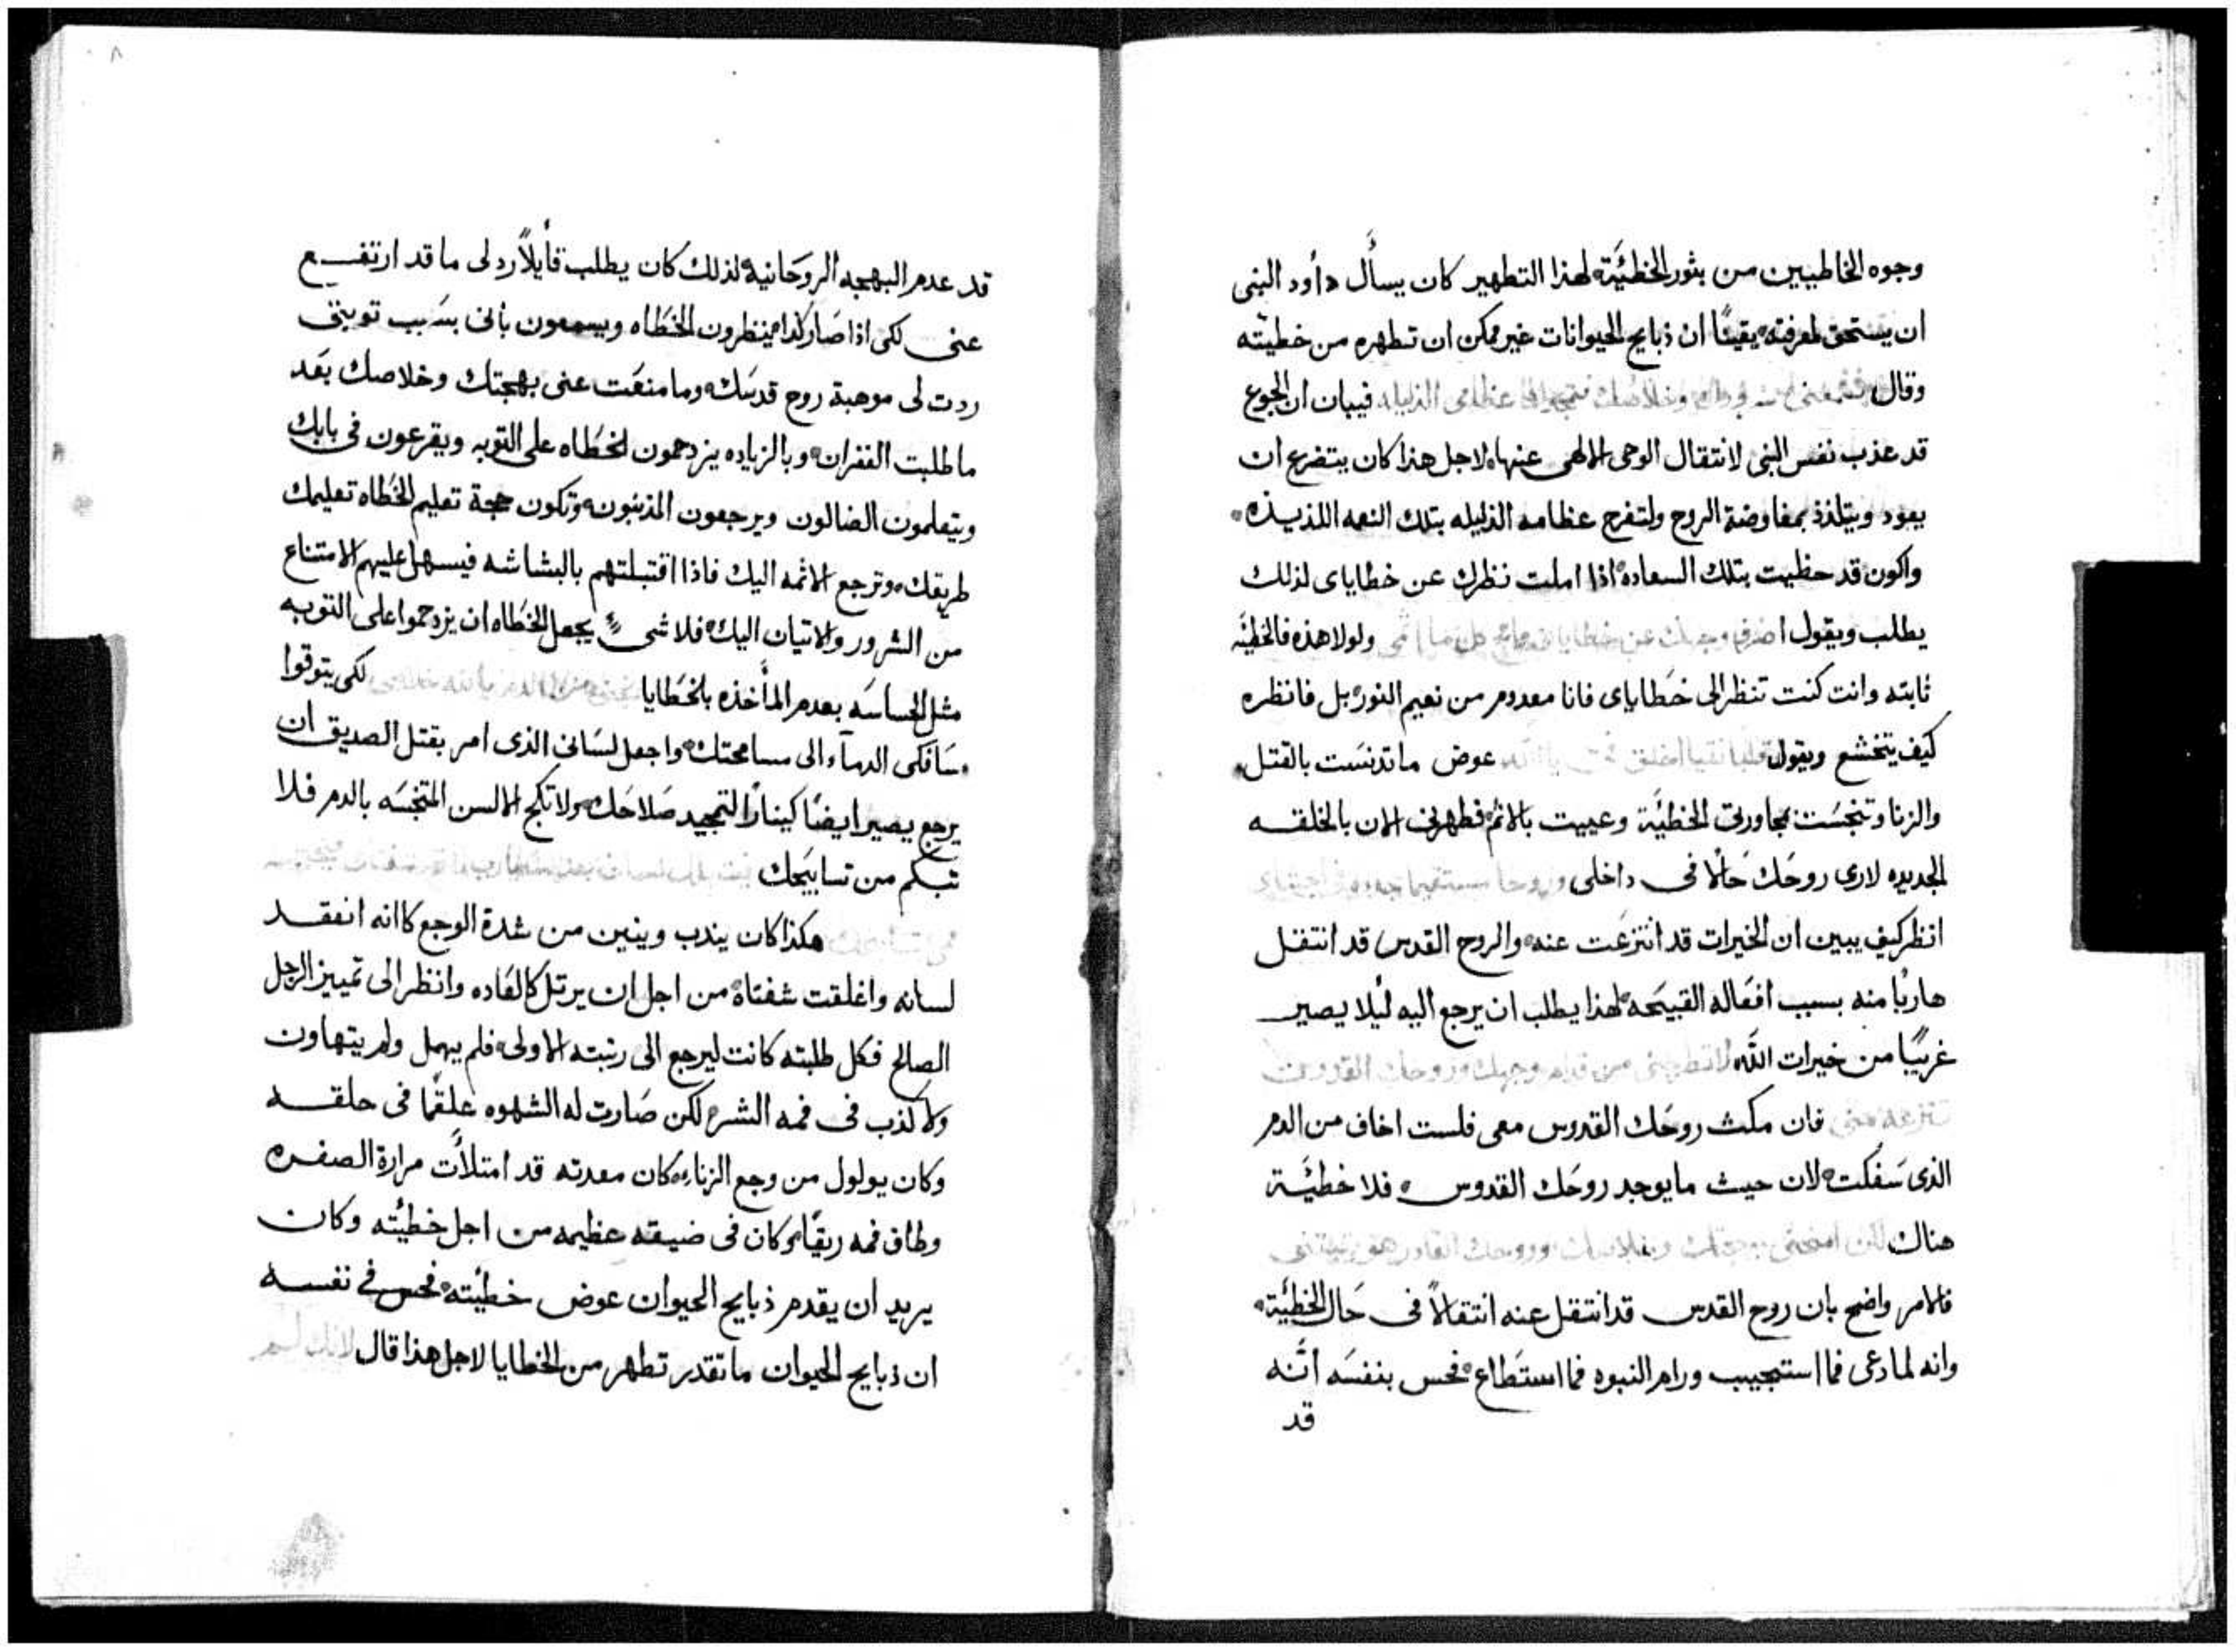 وجوه الخاطيين من بثور الخطئة لهذا التطهير كان يسأل داود النبى
ان يستحق لمعرفته يقينًا ان ذبايح الحيوانات غير ممكن ان تطهره من خطيته
وقال فيبان ان الجوع
قد عذب نفس النبى لانتقال الوحى الالهى عنها لاجل هذا كان يتضرع ان
يعود ويتلذذ بمفاوضة الروح ولتفرح عظامه الذليله بتلك النعمه اللذيذه
واكون قد حظيت بتلك السعاده اذا املت نظرك عن خطاياى لذلك
يطلب ويقول اصرف وجهك عن خطاياى ولولا هذه فالخطئه
ثابته وانت كنت تنظر الى خطاياى فانا معدوم من نعيم النور بل فانظره
كيف يتخشع ويقول قلبا نقيا اخلق فى يا الله عوض ما تدنست بالقتل
والزنا وتنجست بمجاورتى الخطئة وعييت بالاثم فطهرنى الان بالخلقه
الجديده لارى روحك حالًا فى داخلى وروحا مستقيما جدده فى احشاى
انظر كيف يبين ان الخيرات قد انتزعت عنه والروح القدس قد انتقل
هاربًا منه بسبب افعاله القبيحه لهذا يطلب ان يرجع اليه ليلا يصير
غريبًا من خيرات الله لا تطرحنى من قدام وجهك وروحك القدوس
تنزعه منى فان مكث روحك القدوس معى فلست اخاف من الدم
الذى سفكت لان حيث ما يوجد روحك القدوس فلا خطئة
هناك
فالامر واضح بان روح القدس قد انتقل عنه انتقالًا فى حال الخطئة
وانه لما دعى فما استجيب ورام النبوه فما استطاع فحس بنفسه انه
قد
٨
قد عدم البهجه الروحانية لذلك كان يطلب قايلًا رد لى ما قد ارتفع
عنى لكى اذا صار كذا فينظرون الخطاه ويسمعون بانى بسبب توبتى
ردت لى موهبة روح قدسك وما منعت عنى بهجتك وخلاصك بعد
ما طلبت الغفران وبالزياده يزدحمون الخطاه على التوبه ويقرعون فى بابك
ويتعلمون الضالون ويرجعون المذنبون وتكون حجة تعليم الخطاه تعليمك
طريقك وترجع الاثمه اليك فاذا اقتبلتهم بالبشاشه فيسهل عليهم الامتناع
من الشرور والاتيان اليك فلا شىء يجعل الخطاه ان يزدحموا على التوبه
مثل الحساسه بعدم المأخذه بالخطايا لكى يتوقوا
سافكى الدماء الى مسامحتك واجعل لسانى الذى امر بقتل الصديق ان
يرجع يصير ايضًا كينارًا لتمجيد صلاحك ولا تكبح الالسن المتنجسه بالدم فلا
تبكم من تسابيحك
هكذا كان يندب وينين من شدة الوجع كانه انفقد
لسانه واغلقت شفتاه من اجل ان يرتل كالعاده وانظر الى تمييز الرجل
الصالح فكل طلبته كانت ليرجع الى رتبته الاولى فلم يهمل ولم يتهاون
ولا كذب فى فمه الشرح لكن صارت له الشهوه علقمًا فى حلقه
وكان يولول من وجع الزناء كان معدته قد امتلأت مرارة الصفره
وطاف فمه ريقًا وكان فى ضيقه عظيمه من اجل خطئته وكان
يريد ان يقدم ذبايح الحيوان عوض خطئته فحس فى نفسه
ان ذبايح الحيوان ما تقدر تطهر من الخطايا لاجل هذا قال لانك لم